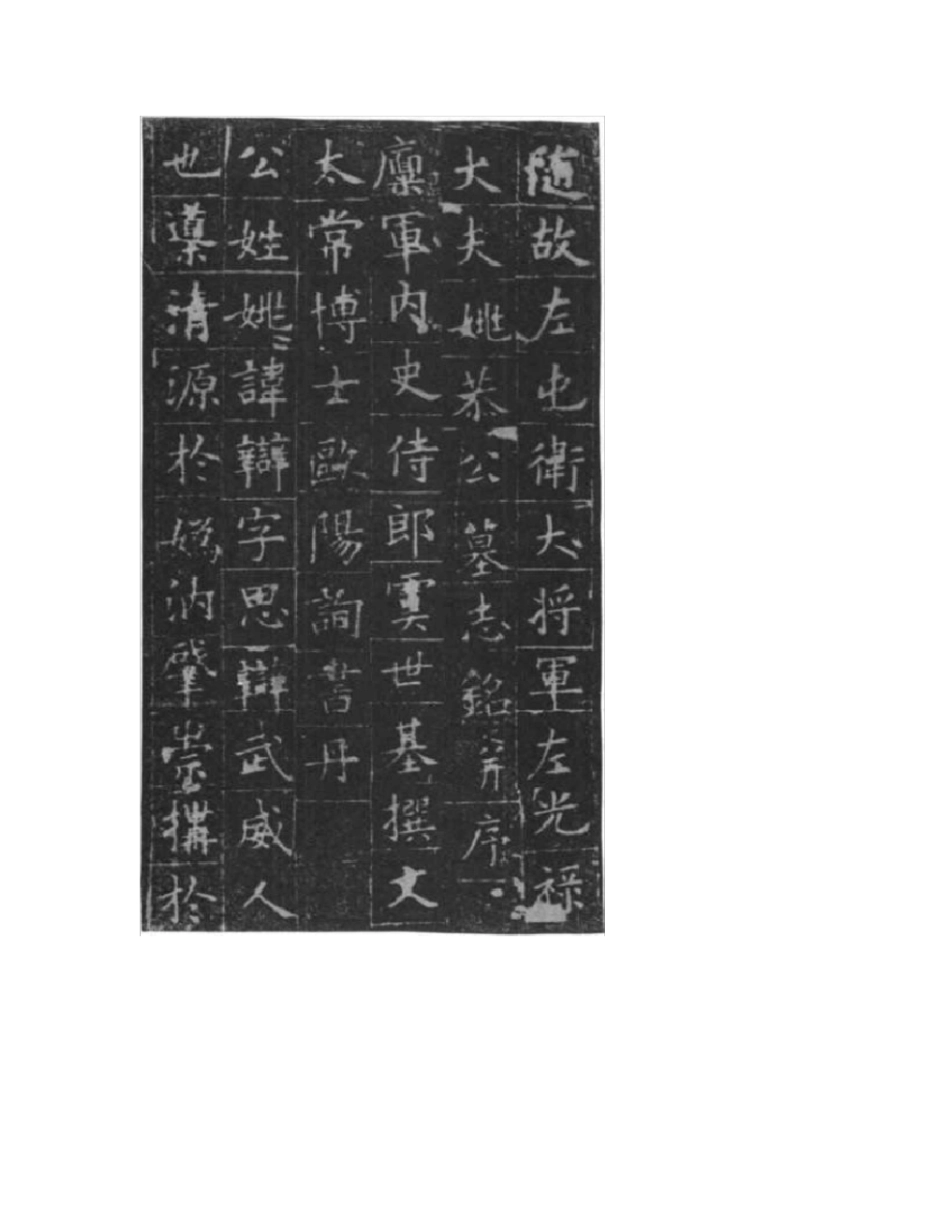 隨故左屯衛大将軍左光祿
大夫姚恭公墓志銘并序
廪軍内史侍郎虞世基撰文
太常博士歐陽詢書丹
公姓姚諱辯字思辯武威人
也導清源於媯汭肇崇搆於